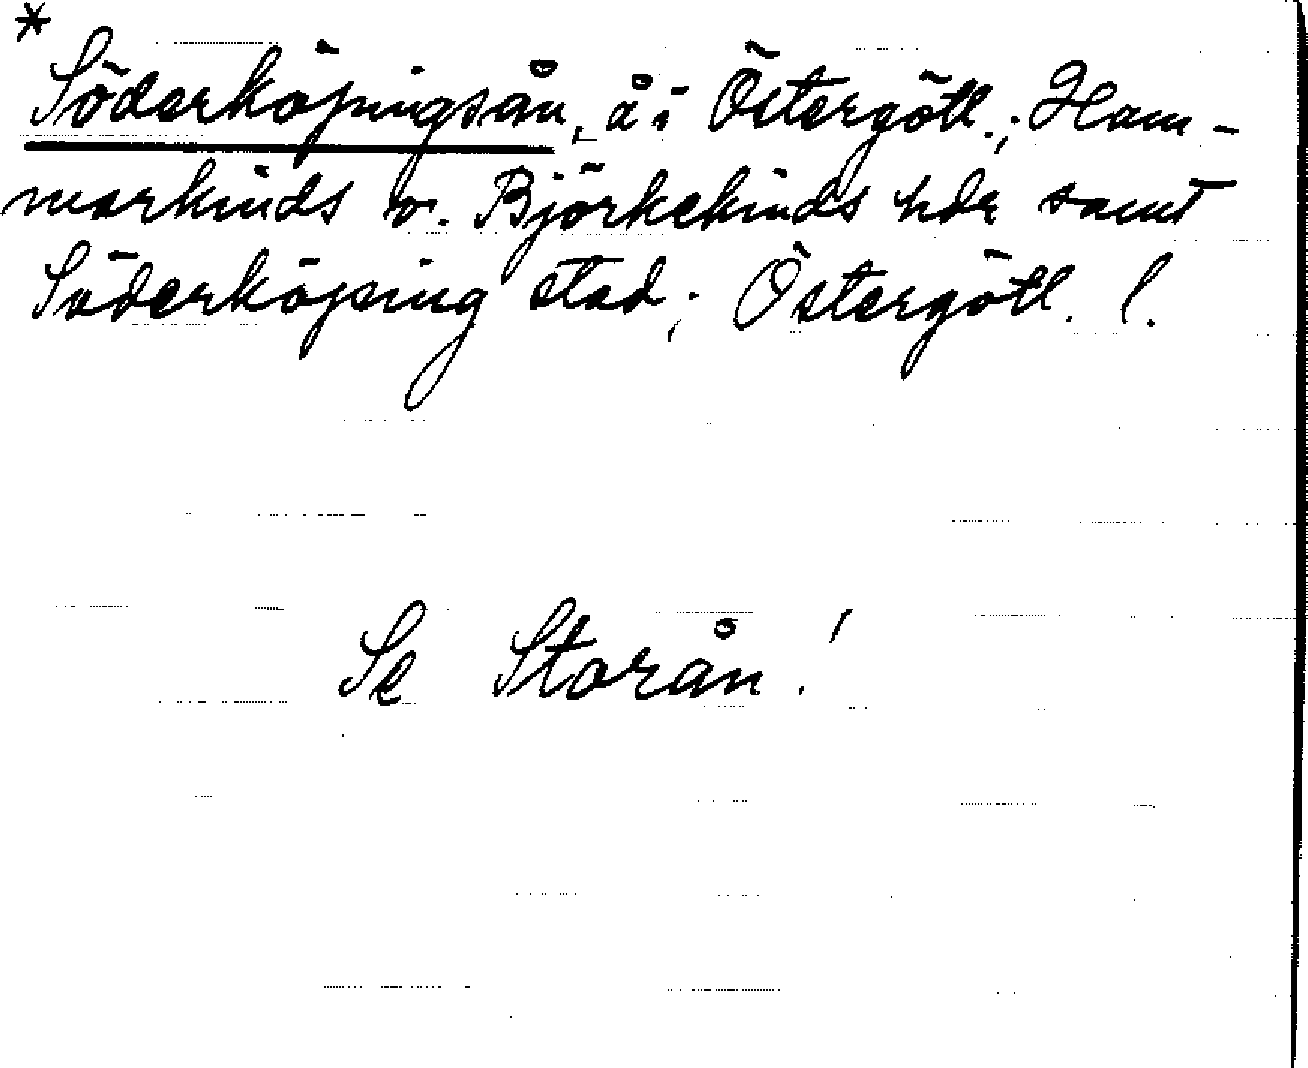 *
Söderköpingsån, å i Östergötl.; Ham-
markinds o. Björkekinds hdr samt
Söderköping stad; Östergötl. l.
Se Storån!